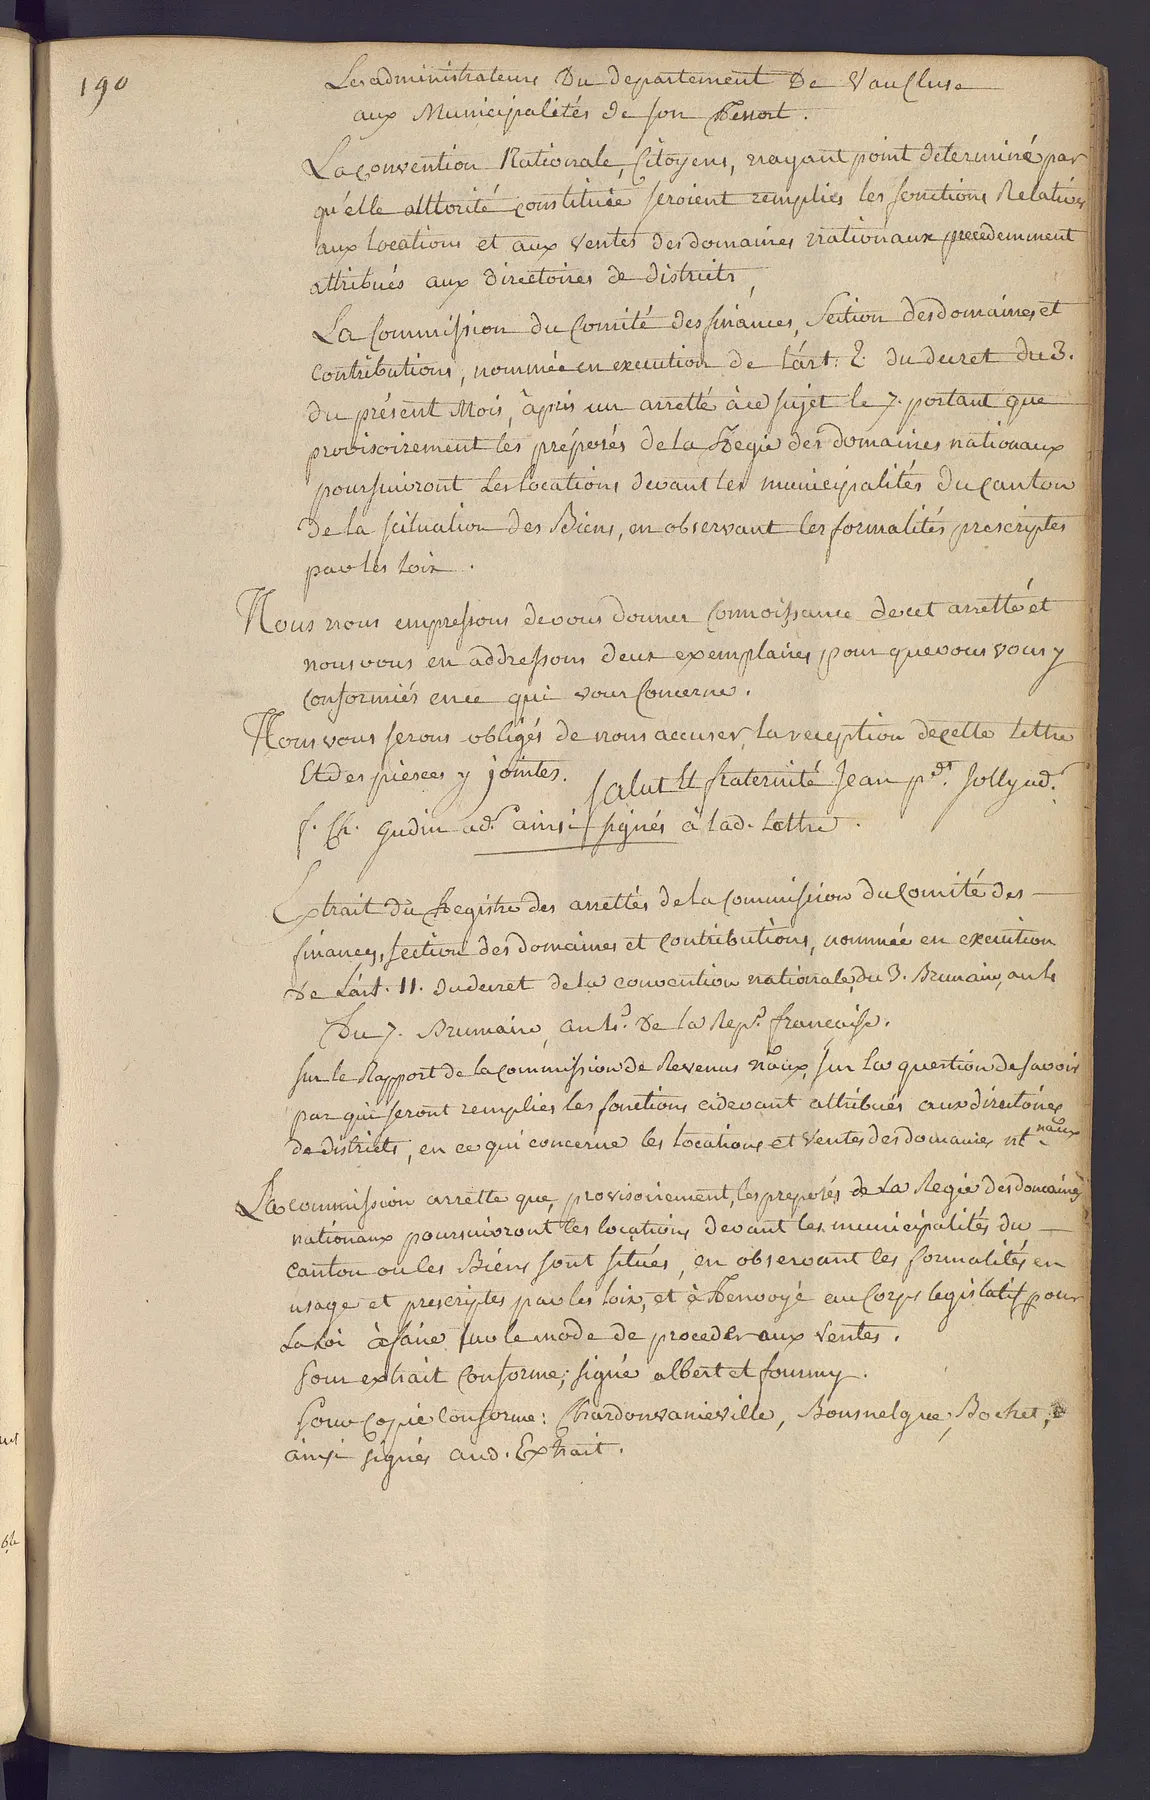 190
Les administrateurs Du departement De Vaucluse
aux Municipalités de son Ressort.
La convention Nationale, Citoyens, nayant point determiné par
qu'elle attorité constituée seroient remplies les fonctions Relatives
aux locations et aux ventes des domaines nationaux precedemment
attribués aux directoires de districts,
La Commission du Comité des finances, Section des domaines et
contributions, nommée en execution de l'art. 2. du decret du 3.
du présent Mois, à pris un arretté à ce sujet le 7. portant que
provisoirement les préposés de la Regie des domaines nationaux
poursuivront Les locations devant les municipalités du canton
de la scituation des Biens, en observant les formalités prescriptes
par les loix.
Nous nous empressons de vous donner Connoissance de cet arretté et
nous vous en addressons deux exemplaires, pour que vous vous y
conformiés en ce qui vous Concerne.
Nous vous serons obligés de nous accuser, la reception de cette lettre
Et des pieces y jointes. Salut Et fraternité Jean pdt. Jolly ad.r
f. Ch. Gudin ad.r ainsi signés à lad. Lettre.
Extrait du Registre des arrettés de la Commission du Comité des
finances, section des domaines et contributions, nommée en execution
De L'art. 11. du decret de la convention nationale, du 3. Brumaire, an 4.
Du 7. Brumaire, an 4.e De la Rep.e francaise.
sur le Rapport de la commission de Revenus naux, sur la question de savoir
par qui seront remplies les fonctions cidevant attribués aux directoires
de districts, en ce qui concerne les locations et ventes des domaines nt naux
La commission arrette que, provisoirement, les preposés de La Regie des domaines
nationaux poursuivront les locations devant les municipalités du
canton ou les Biéns sont situés, en observant les formalités en
usage et prescriptes par les loix, et à Renvoyé au Corps legislatif pour
La Loi à faire sur le mode de proceder aux ventes.
pour extrait Conforme; signé albert et fourmy.
pour Copie Conforme: Chardonvanieville, Bochet,
ainsi signés aud. Extrait.